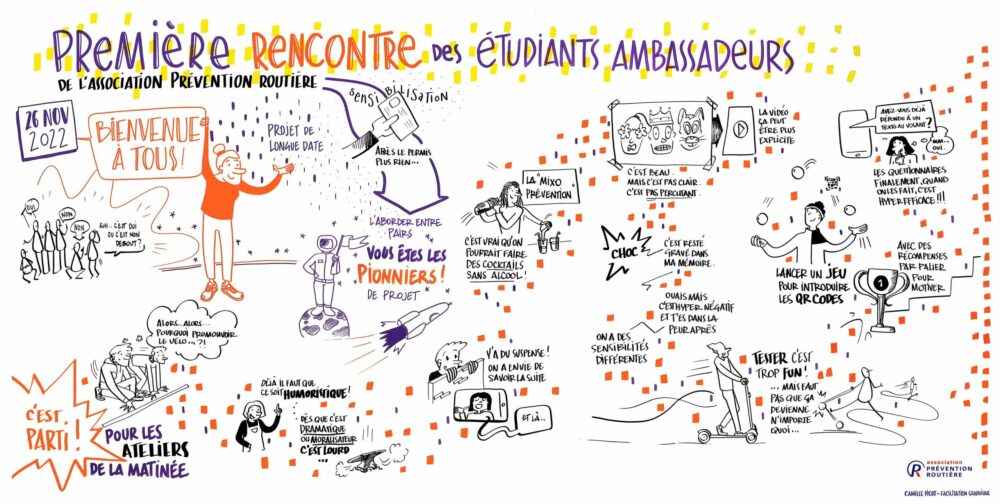 PREMIÈRE RENCONTRE DES ÉTUDIANTS AMBASSADEURS
DE L'ASSOCIATION PRÉVENTION ROUTIÈRE
26 NOV
2022
BIENVENUE
À TOUS !
PROJET DE
LONGUE DATE
SENSIBILISATION
APRÈS LE PERMIS
PLUS RIEN...
L'ABORDER ENTRE
PAIRS
VOUS ÊTES LES
PIONNIERS !
DE PROJET
OUI
NON
NON
EUH... C'EST OUI
OU C'EST NON
DEBOUT ?
ALORS... ALORS...
POURQUOI PROMOUVOIR
LE VÉLO...?!
C'EST
PARTI !
POUR LES
ATELIERS
DE LA MATINÉE
DÉJÀ IL FAUT QUE
CE SOIT HUMORISTIQUE !
DÈS QUE C'EST
DRAMATIQUE
OU MORALISATEUR
C'EST LOURD...
LA MIXO
PRÉVENTION
C'EST VRAI QU'ON
POURRAIT FAIRE
DES COCKTAILS
SANS ALCOOL !
Y'A DU SUSPENSE !
ON A ENVIE DE
SAVOIR LA SUITE
ET LÀ...
LA VIDÉO
ÇA PEUT
ÊTRE PLUS
EXPLICITE
C'EST BEAU.
MAIS C'EST PAS CLAIR.
C'EST PAS PERCUTANT.
CHOC
C'EST RESTÉ
GRAVÉ DANS
MA MÉMOIRE.
OUAIS MAIS
C'EST HYPER NÉGATIF
ET T'ES DANS LA
PEUR APRÈS
ON A DES
SENSIBILITÉS
DIFFÉRENTES
AVEZ-VOUS DÉJÀ
RÉPONDU À UN
TEXTO AU VOLANT ?
MM...
OUI...
LES QUESTIONNAIRES
FINALEMENT, QUAND
ON LES FAIT, C'EST
HYPER EFFICACE !!!
LANCER UN JEU
POUR INTRODUIRE
LES QR CODES
AVEC DES
RÉCOMPENSES
PAR PALIER
POUR
MOTIVER
1
TESTER C'EST
TROP FUN !
... MAIS FAUT
PAS QUE ÇA
DEVIENNE
N'IMPORTE
QUOI...
association
PRÉVENTION
ROUTIÈRE
FACILITATION GRAPHIQUE